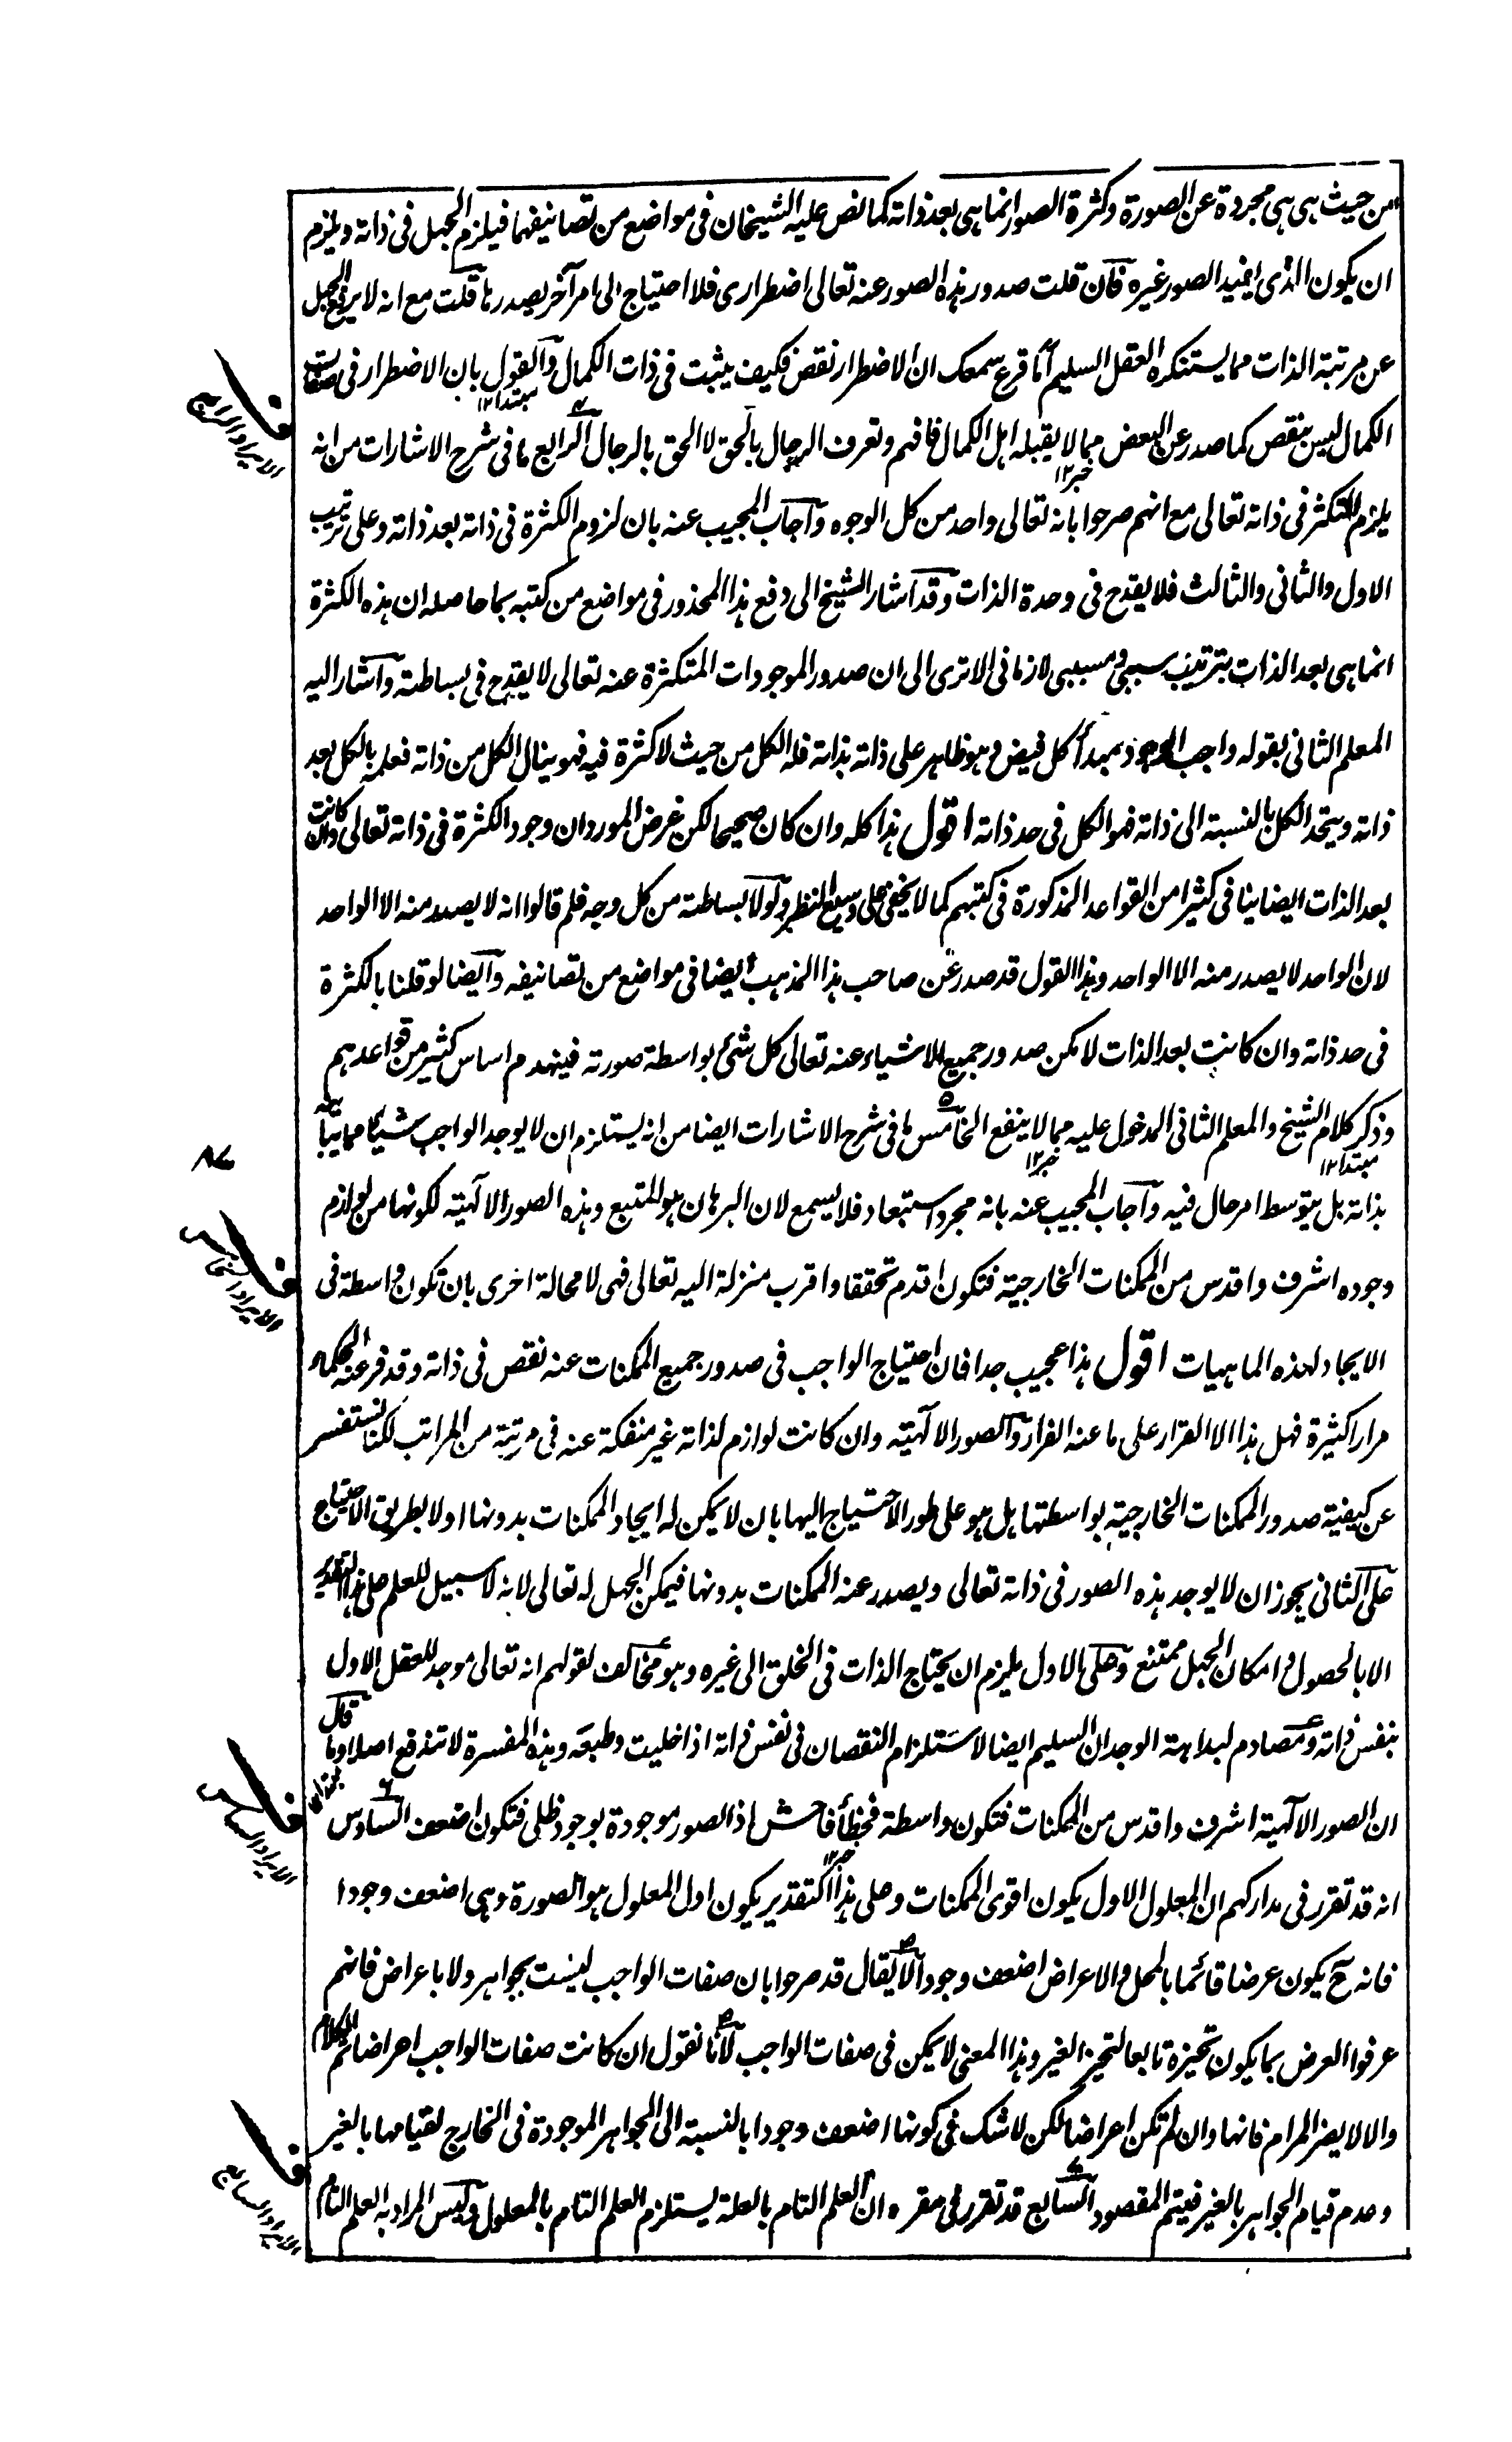 من حيث هى هى مجردة عن الصورة وكثرة الصور انما هى بعد ذاته كما نص عليه الشيخان فى مواضع من تصانيفهما فيلزم الجهل فى ذاته ويلزم
ان يكون الذى يفيد الصور غيره فان قلت صدور هذه الصور عنه تعالى اضطرارى فلا احتياج الى امر آخر يصدرها قلت مع انه لا يرفع الجهل
عن مرتبة الذات مما يستنكره العقل السليم أما قرع سمعك ان الاضطرار نقص فكيف يثبت فى ذات الكمال والقول بان الاضطرار فى صفات
مبتدا ١٢
الايراد الرابع
الكمال ليس بنقص كما صدر عن البعض مما لا يقبله اهل الكمال فافهم وتعرف الرجال بالحق لا الحق بالرجال الرابع ما فى شرح الاشارات من انه
خبر ١٢
يلزم التكثر فى ذاته تعالى مع انهم صرحوا بانه تعالى واحد من كل الوجوه وآجاب المجيب عنه بان لزوم الكثرة فى ذاته بعد ذاته وعلى ترتيب
الاول والثانى والثالث فلا يقدح فى وحدة الذات وقد اشار الشيخ الى دفع هذا المحذور فى مواضع من كتبه بما حاصله ان هذه الكثرة
انما هى بعد الذات بترتيب سببى ومسببى لا زمانى الا ترى الى ان صدور الموجودات المتكثرة عنه تعالى لا يقدح فى بساطته واشار اليه
المعلم الثانى بقوله واجب الوجود مبدأ كل فيض وهو ظاهر على ذاته بذاته فله الكل من حيث لا كثرة فيه فهو ينال الكل من ذاته فعلمه بالكل بعد
ذاته ويتحد الكل بالنسبة الى ذاته فهو الكل فى حد ذاته اقول هذا كله وان كان صحيحا لكن غرض المورد ان وجود الكثرة فى ذاته تعالى وان كانت
بعد الذات ايضا ينافى كثيرا من القواعد المذكورة فى كتبهم كما لا يخفى على وسيع النظر ولولا بساطته من كل وجه فلم قالوا انه لا يصدر منه الا الواحد
لان الواحد لا يصدر منه الا الواحد وهذا القول قد صدر عن صاحب هذا المذهب ايضا فى مواضع من تصانيفه وآيضا لو قلنا بالكثرة
فى حد ذاته وان كانت بعد الذات لامكن صدور جميع الاشياء عنه تعالى كل شئ بواسطة صورته فينهدم اساس كثير من قواعدهم
وذكر كلام الشيخ والمعلم الثانى المدخول عليه مما لا ينفع الخامس ما فى شرح الاشارات ايضا من انه يستلزم ان لا يوجد الواجب شيئا مما يباينه
مبتدا ١٢
خبر ١٢
٨٧
بذاته بل بتوسط امر حال فيه وآجاب المجيب عنه بانه مجرد استبعاد فلا يسمع لان البرهان هو المتبع وهذه الصور الالٰهية لكونها من لوازم
الايراد الخامس
وجوده اشرف واقدس من الممكنات الخارجية فتكون اقدم تحققا واقرب منزلة اليه تعالى فهى لا محالة اخرى بان تكون واسطة فى
الايجاد لهذه الماهيات اقول هذا عجيب جدا فان احتياج الواجب فى صدور جميع الممكنات عنه نقص فى ذاته وقد فر عنه الحكماء
مرارا كثيرة فهل هذا الا القرار على ما عنه الفرار والصور الالٰهية وان كانت لوازم لذاته غير منفكة عنه فى مرتبة من المراتب لكنا نستفسر
عن كيفية صدور الممكنات الخارجية بواسطتها هل هو على طور الاحتياج اليها بان لا يمكن له ايجاد الممكنات بدونها او لا بطريق الاحتياج
على الثانى يجوز ان لا يوجد هذه الصور فى ذاته تعالى ويصدر عنه الممكنات بدونها فيمكن الجهل له تعالى لانه لا سبيل للعلم على هذا التقدير
الا بالحصول وامكان الجهل ممتنع وعلى الاول يلزم ان يحتاج الذات فى الخلق الى غيره وهو مخالف لقولهم انه تعالى موجد للعقل الاول
بنفس ذاته ومصادم لبداهة الوجدان السليم ايضا لاستلزام النقصان فى نفس ذاته اذا خليت وطبعه وهذه المفسرة لا تندفع اصلا وما قال
مبتدا ١٢
الايراد السادس
ان الصور الالٰهية اشرف واقدس من الممكنات فتكون واسطة فخطأ فاحش اذ الصور موجودة بوجود ظلى فتكون اضعف السادس
خبر ١٢
انه قد تقرر فى مداركهم ان المعلول الاول يكون اقوى الممكنات وعلى هذا التقدير يكون اول المعلول هو الصورة وهى اضعف وجودا
فانه ح يكون عرضا قائما بالمحل والاعراض اضعف وجودا لا يقال قد صرحوا بان صفات الواجب ليست بجواهر ولا باعراض فانهم
عرفوا العرض بما يكون تحيزه تابعا لتحيز الغير وهذا المعنى لا يمكن فى صفات الواجب لانا نقول ان كانت صفات الواجب اعراضا تم الكلام
والا لا يضر المرام فانها وان لم تكن اعراضا لكن لا شك فى كونها اضعف وجودا بالنسبة الى الجواهر الموجودة فى الخارج لقيامها بالغير
وعدم قيام الجواهر بالغير فيتم المقصود السابع قد تقرر فى مقره ان العلم التام بالعلة يستلزم العلم التام بالمعلول وليس المراد به العلم التام
الايراد السابع